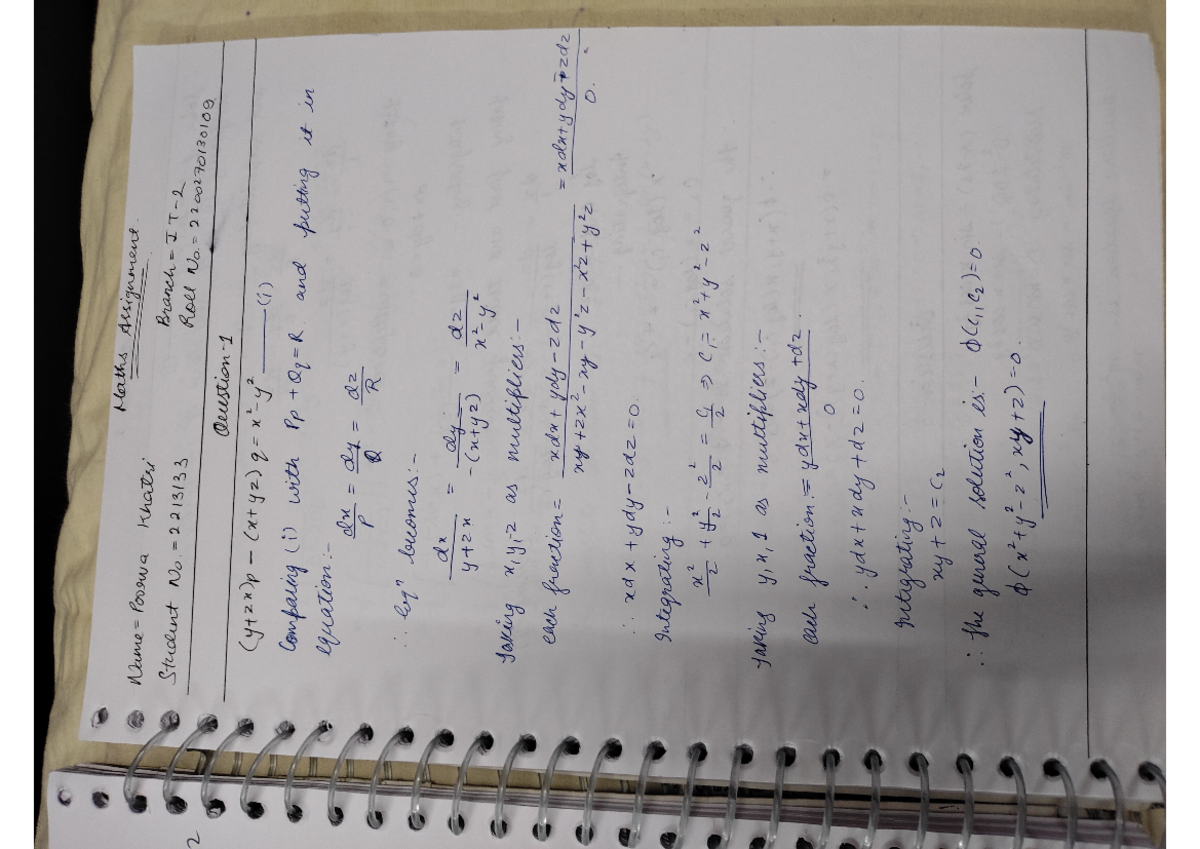 Maths Assignment.
Name = Poorva Khatri
Branch = IT-2
Student No. = 2213133
Roll No. = 2200270130109
Question-1
(y+zx)p - (x+yz)q = x²-y² ——— (i)
Comparing (i) with Pp + Qq = R and putting it in
equation:-
dx/P = dy/Q = dz/R
∴ eqⁿ becomes:-
dx/(y+zx) = dy/-(x+yz) = dz/(x²-y²)
Taking x, y, -z as multipliers:-
each fraction = (xdx + ydy - zdz)/(xy + zx² - xy - y²z - x²z + y²z) = (xdx + ydy - zdz)/0.
∴ xdx + ydy - zdz = 0.
Integrating :-
x²/2 + y²/2 - z²/2 = c₁/2 ⇒ c₁ = x² + y² - z²
Taking y, x, 1 as multipliers:-
each fraction:= (ydx + xdy + dz)/0.
∴ ydx + xdy + dz = 0.
Integrating:-
xy + z = c₂
∴ The general solution is:- ϕ(c₁, c₂) = 0.
ϕ(x² + y² - z², xy + z) = 0.
2